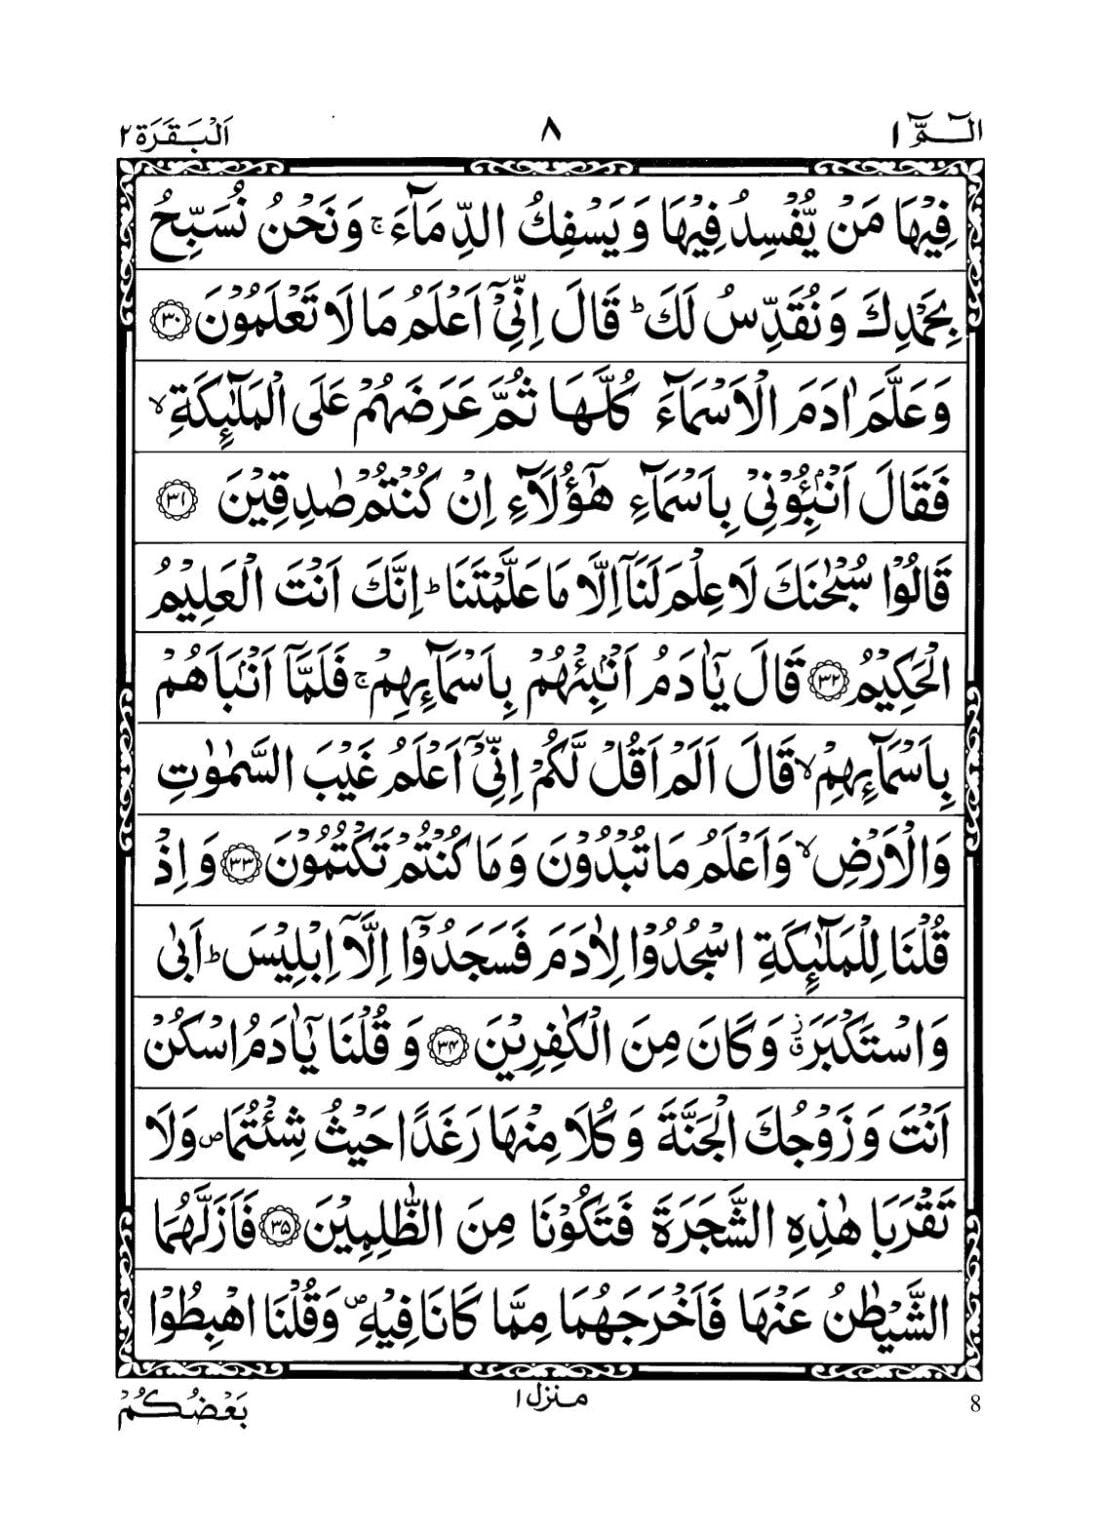 الٓـمّٓ ١ ٨ اَلْبَقَرَة ٢
فِيْهَا مَنْ يُّفْسِدُ فِيْهَا وَيَسْفِكُ الدِّمَآءَ ۚ وَنَحْنُ نُسَبِّحُ
بِحَمْدِكَ وَنُقَدِّسُ لَكَ ؕ قَالَ اِنِّىْۤ اَعْلَمُ مَا لَا تَعْلَمُوْنَ ۝٣٠
وَعَلَّمَ اٰدَمَ الْاَسْمَآءَ كُلَّهَا ثُمَّ عَرَضَهُمْ عَلَى الْمَلٰٓئِكَةِ ۙ
فَقَالَ اَنْۢبِـُٔوْنِىْ بِاَسْمَآءِ هٰٓؤُلَآءِ اِنْ كُنْتُمْ صٰدِقِيْنَ ۝٣١
قَالُوْا سُبْحٰنَكَ لَا عِلْمَ لَنَاۤ اِلَّا مَا عَلَّمْتَنَا ؕ اِنَّكَ اَنْتَ الْعَلِيْمُ
الْحَكِيْمُ ۝٣٢ قَالَ يٰۤاٰدَمُ اَنْۢبِئْهُمْ بِاَسْمَآئِهِمْ ۚ فَلَمَّاۤ اَنْۢبَاَهُمْ
بِاَسْمَآئِهِمْ ۙ قَالَ اَلَمْ اَقُلْ لَّكُمْ اِنِّىْۤ اَعْلَمُ غَيْبَ السَّمٰوٰتِ
وَالْاَرْضِ ۙ وَاَعْلَمُ مَا تُبْدُوْنَ وَمَا كُنْتُمْ تَكْتُمُوْنَ ۝٣٣ وَاِذْ
قُلْنَا لِلْمَلٰٓئِكَةِ اسْجُدُوْا لِاٰدَمَ فَسَجَدُوْۤا اِلَّاۤ اِبْلِيْسَ ؕ اَبٰى
وَاسْتَكْبَرَ ۫ وَكَانَ مِنَ الْكٰفِرِيْنَ ۝٣٤ وَقُلْنَا يٰۤاٰدَمُ اسْكُنْ
اَنْتَ وَزَوْجُكَ الْجَنَّةَ وَكُلَا مِنْهَا رَغَدًا حَيْثُ شِئْتُمَا ص وَلَا
تَقْرَبَا هٰذِهِ الشَّجَرَةَ فَتَكُوْنَا مِنَ الظّٰلِمِيْنَ ۝٣٥ فَاَزَلَّهُمَا
الشَّيْطٰنُ عَنْهَا فَاَخْرَجَهُمَا مِمَّا كَانَا فِيْهِ ص وَقُلْنَا اهْبِطُوْا
بَعْضُكُمْ منزل ١ 8